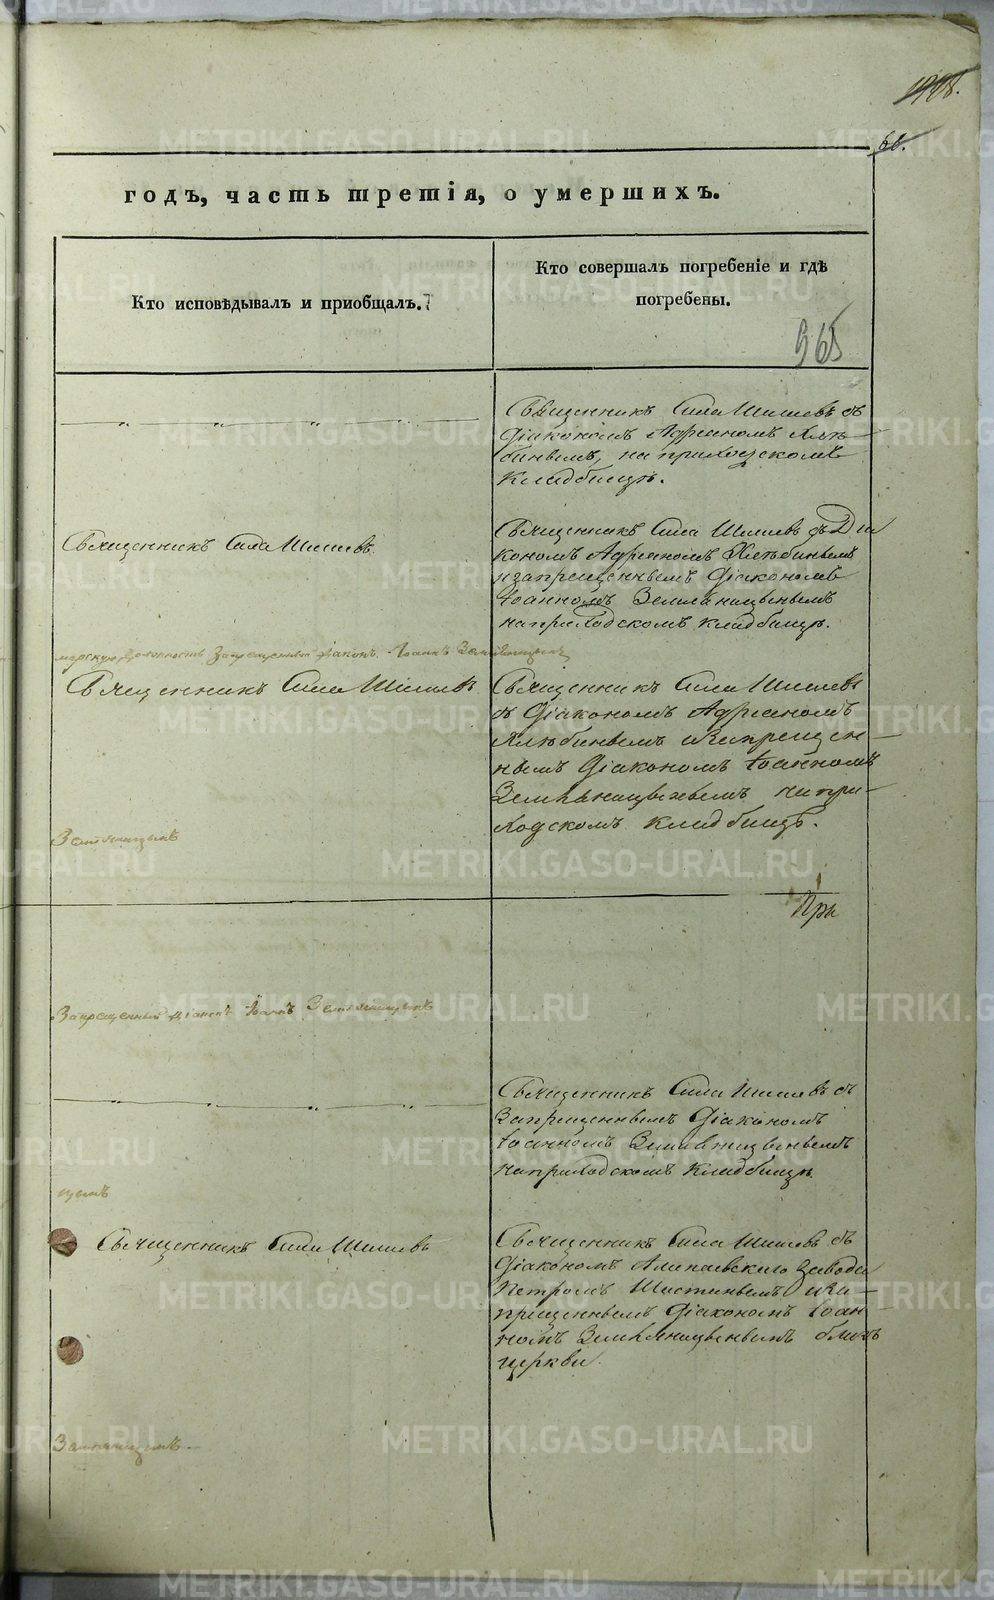 66.
годъ, часть третія, о умершихъ.
Кто исповѣдывалъ и приобщалъ.
Кто совершалъ погребеніе и гдѣ
погребены.
965
Священникъ Сила Шишевъ съ
Діакономъ Адріаномъ Хлѣ-
бинымъ, на приходскомъ
кладбищѣ.
Священникъ Сила Шишевъ
Священникъ Сила Шишевъ съ Діа
кономъ Адріаномъ Хлѣбинымъ
и запрещеннымъ Діакономъ
Іоанномъ Земляницынымъ
на приходскомъ кладбищѣ.
должность Запрещенный Діаконъ Іоаннъ Земляницынъ
Священникъ Сила Шишевъ
Священникъ Сила Шишевъ
съ Діакономъ Адріаномъ
Хлѣбинымъ и Запрещен-
нымъ Діакономъ Іоанномъ
Земляницынымъ на при-
ходскомъ кладбищѣ.
Земляницынъ
При
Запрещенный Діаконъ Іоаннъ Земляницынъ
Священникъ Сила Шишевъ съ
Запрещеннымъ Діакономъ
Іоанномъ Земляницынымъ
на приходскомъ кладбищѣ
цынъ
Священникъ Сила Шишевъ
Священникъ Сила Шишевъ съ
Діакономъ Алапаевскаго завода
Петромъ и За-
прещеннымъ Діакономъ Іоан
номъ Земляницынымъ близъ
церкви.
Земляницынъ
METRIKI.GASO-URAL.RU